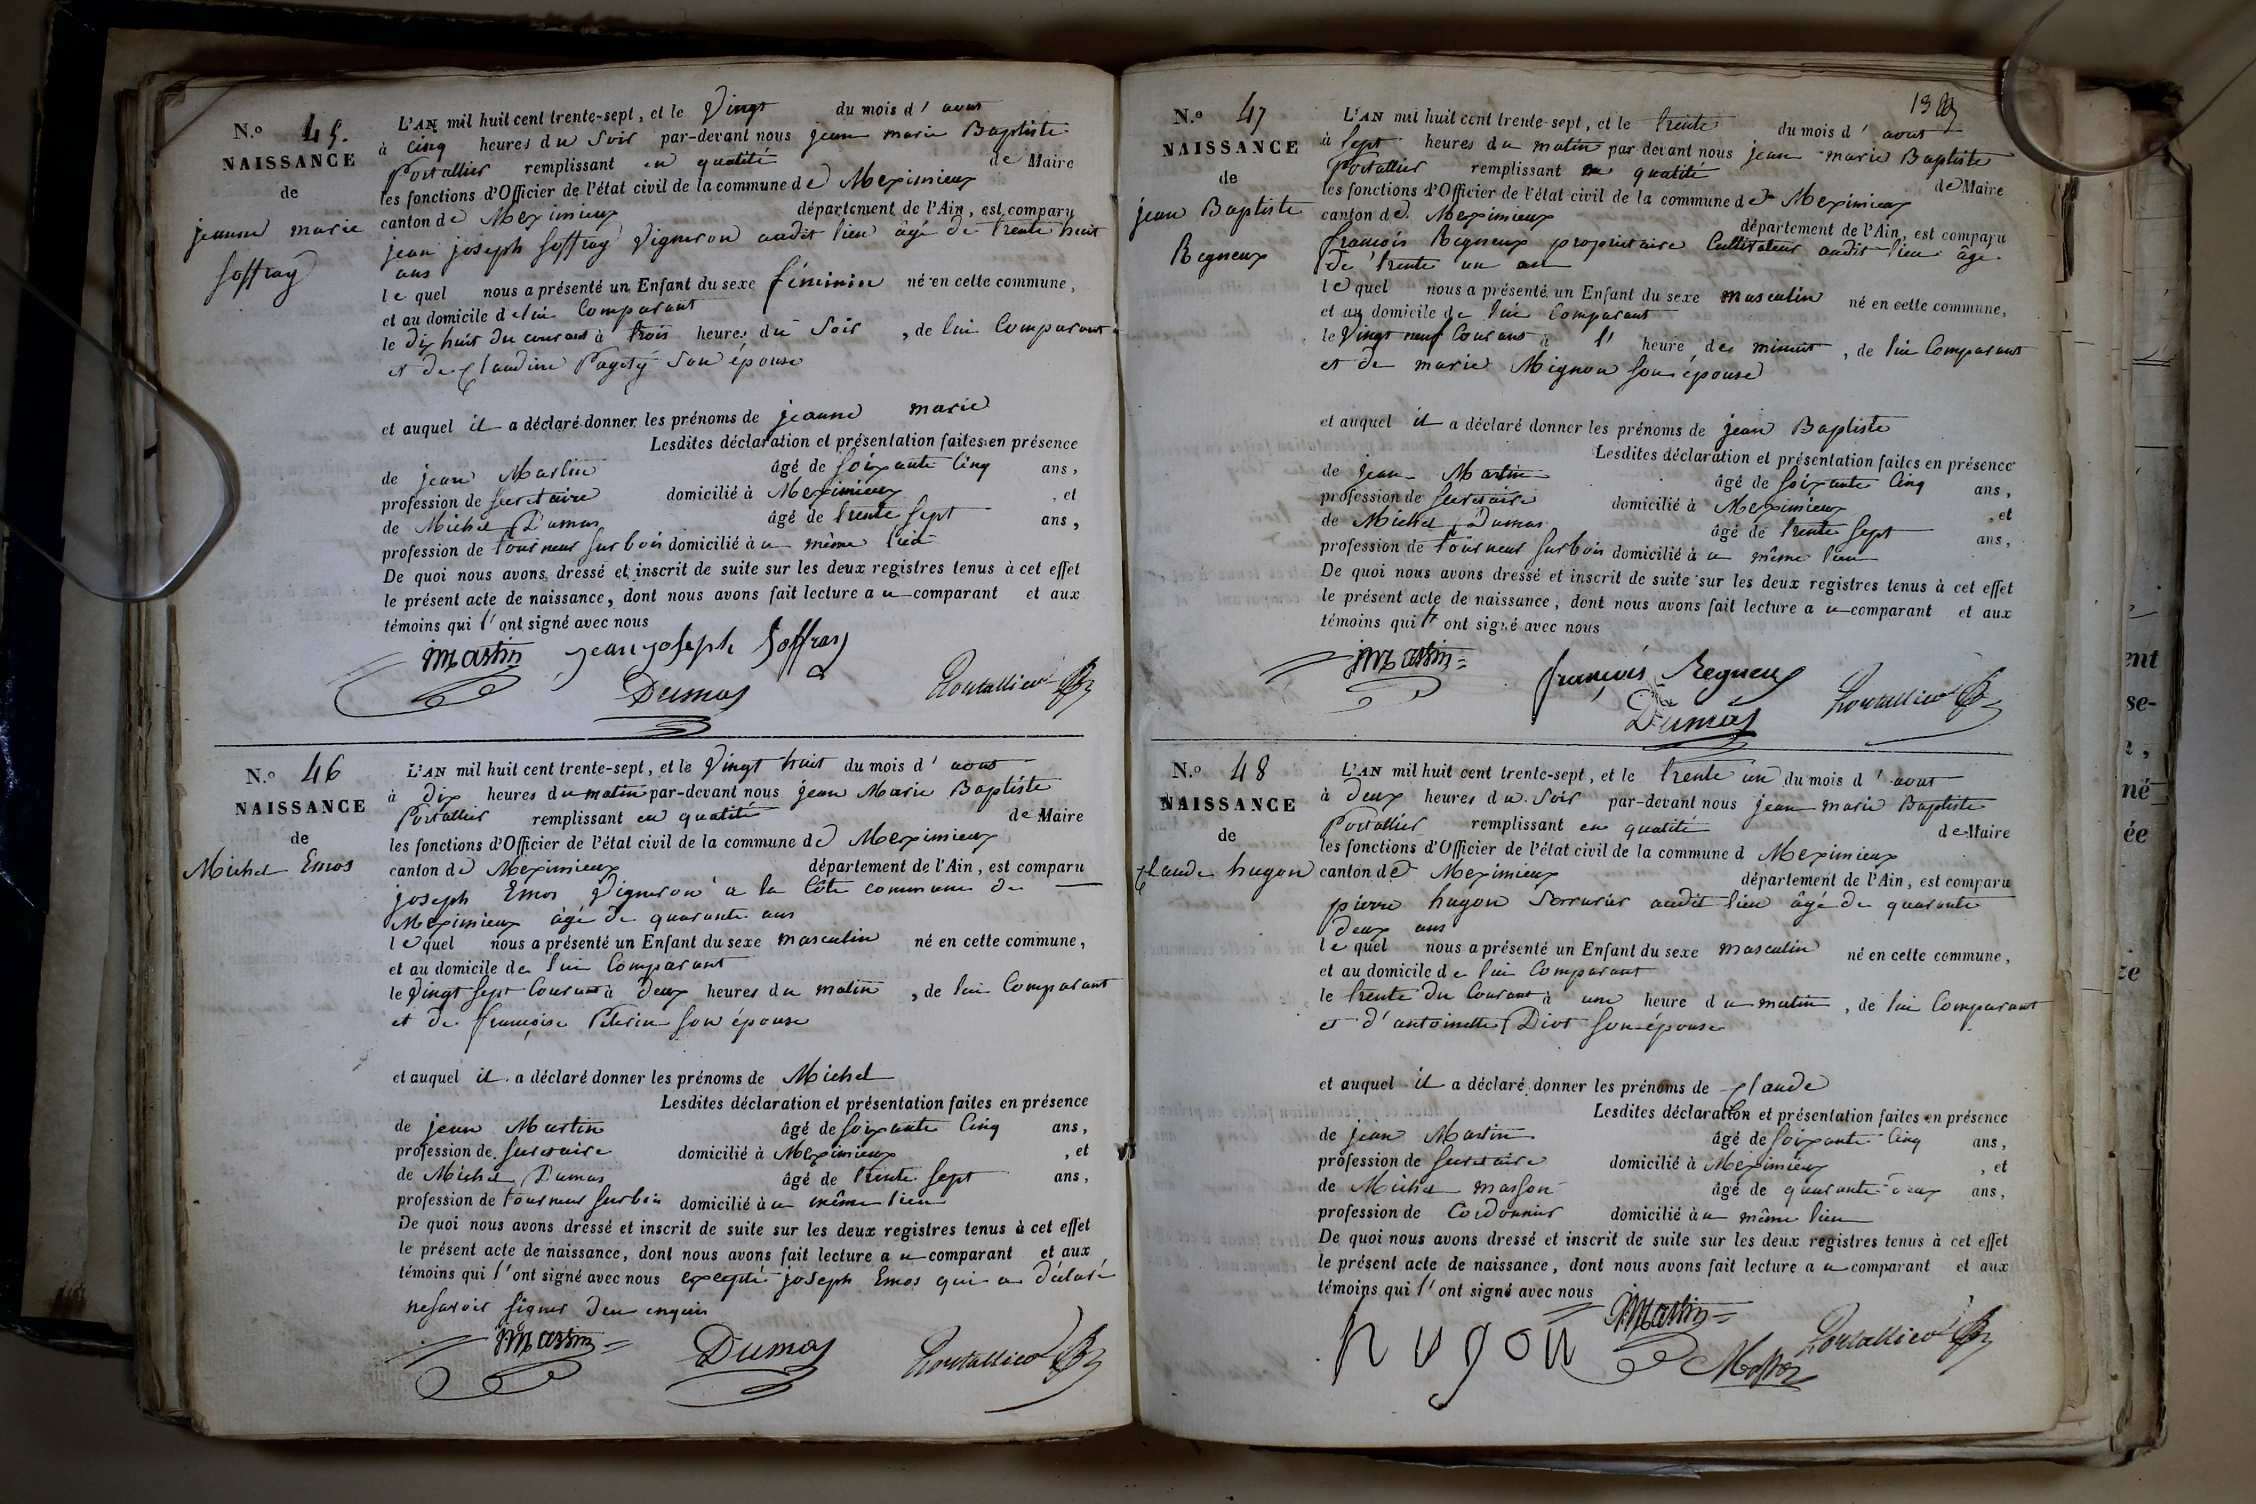 N.o 45.
NAISSANCE
de
jeanne marie
Joffray
L'AN mil huit cent trente-sept, et le Vingt du mois d' aout
à cinq heures du Soir par-devant nous jean marie Baptiste
Portallier remplissant en qualité de Maire
les fonctions d'Officier de l'état civil de la commune de Meximieux
canton de Meximieux département de l'Ain, est comparu
jean joseph Joffray Vigneron audit lieu âgé de trente huit
ans
lequel nous a présenté un Enfant du sexe féminin né en cette commune,
et au domicile de lui Comparant
le dix huit du courant à trois heures du Soir, de lui Comparant
et de Claudine Pagety Son épouse
et auquel il a déclaré donner les prénoms de jeanne marie
Lesdites déclaration et présentation faites en présence
de jean Martin âgé de Soixante Cinq ans,
profession de Secretaire domicilié à Meximieux, et
de Michel Dumas âgé de trente Sept ans,
profession de tourneur Sur bois domicilié à u même lieu
De quoi nous avons dressé et inscrit de suite sur les deux registres tenus à cet effet
le présent acte de naissance, dont nous avons fait lecture a u comparant et aux
témoins qui l' ont signé avec nous
Martin jean joseph Joffray
Dumas Portallier
N.o 46
NAISSANCE
de
Michel Emos
L'AN mil huit cent trente-sept, et le Vingt huit du mois d' aout
à dix heures du matin par-devant nous jean Marie Baptiste
Portallier remplissant en qualité de Maire
les fonctions d'Officier de l'état civil de la commune de Meximieux
canton de Meximieux département de l'Ain, est comparu
joseph Emos Vigneron a la Côte commune de
Meximieux âgé de quarante ans
lequel nous a présenté un Enfant du sexe masculin né en cette commune,
et au domicile de lui Comparant
le Vingt Sept Courant à deux heures du matin, de lui Comparant
et de françoise Pelerin Son épouse
et auquel il a déclaré donner les prénoms de Michel
Lesdites déclaration et présentation faites en présence
de jean Martin âgé de Soixante Cinq ans,
profession de Secretaire domicilié à Meximieux, et
de Michel Dumas âgé de trente Sept ans,
profession de tourneur Sur bois domicilié à u même lieu
De quoi nous avons dressé et inscrit de suite sur les deux registres tenus à cet effet
le présent acte de naissance, dont nous avons fait lecture a u comparant et aux
témoins qui l' ont signé avec nous excepté joseph Emos qui a déclaré
ne Savoir Signer d'eu enquis
Martin Dumas Portallier
N.o 47
NAISSANCE
de
jean Baptiste
Regneux
L'AN mil huit cent trente-sept, et le trente du mois d' aout
à Sept heures du matin par devant nous jean marie Baptiste
Portallier remplissant en qualité de Maire
les fonctions d'Officier de l'état civil de la commune de Meximieux
canton de Meximieux département de l'Ain, est comparu
françois Regneux propriétaire Cultivateur audit lieu âgé
de trente un an
lequel nous a présenté un Enfant du sexe masculin né en cette commune,
et au domicile de lui Comparant
le Vingt neuf Courant à l' heure de minuit, de lui Comparant
et de marie Mignon Son épouse
et auquel il a déclaré donner les prénoms de jean Baptiste
Lesdites déclaration et présentation faites en présence
de jean Martin âgé de Soixante Cinq ans,
profession de Secretaire domicilié à Meximieux, et
de Michel Dumas âgé de trente Sept ans,
profession de tourneur Sur bois domicilié à u même lieu
De quoi nous avons dressé et inscrit de suite sur les deux registres tenus à cet effet
le présent acte de naissance, dont nous avons fait lecture a u comparant et aux
témoins qui l' ont signé avec nous
Martin françois Regneux
Dumas Portallier
N.o 48
NAISSANCE
de
Claude hugon
L'AN mil huit cent trente-sept, et le trente un du mois d' aout
à deux heures du Soir par-devant nous jean marie Baptiste
Portallier remplissant en qualité de Maire
les fonctions d'Officier de l'état civil de la commune d Meximieux
canton de Meximieux département de l'Ain, est comparu
pierre hugon Serrurier audit lieu âgé de quarante
deux ans
lequel nous a présenté un Enfant du sexe masculin né en cette commune,
et au domicile de lui Comparant
le trente du Courant à une heure du matin, de lui Comparant
et d'antoinette Diot Son épouse
et auquel il a déclaré donner les prénoms de Claude
Lesdites déclaration et présentation faites en présence
de jean Martin âgé de Soixante Cinq ans,
profession de Secretaire domicilié à Meximieux, et
de Michel masson âgé de quarante deux ans,
profession de Cordonnier domicilié à u même lieu
De quoi nous avons dressé et inscrit de suite sur les deux registres tenus à cet effet
le présent acte de naissance, dont nous avons fait lecture a u comparant et aux
témoins qui l' ont signé avec nous
hugon Martin Portallier
Masson
ent
se-
né
ée